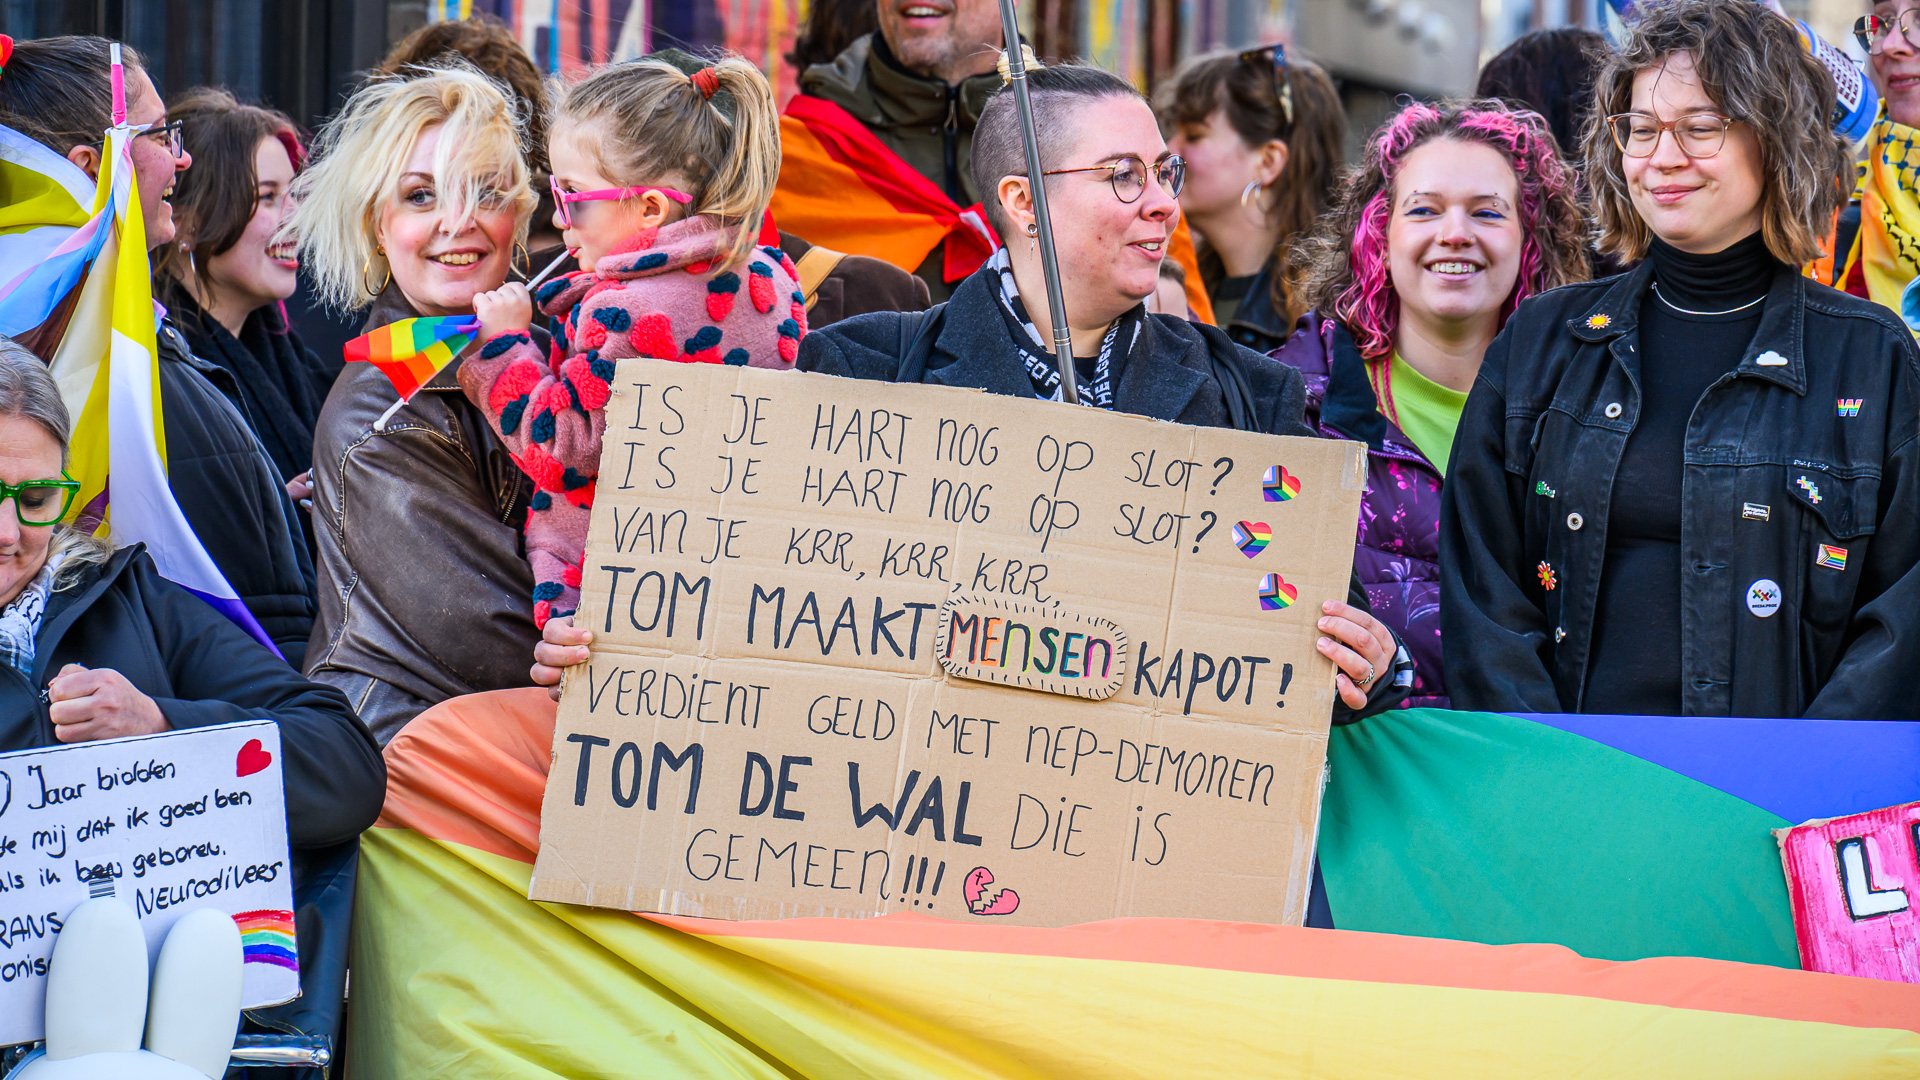 IS JE HART NOG OP SLOT?
IS JE HART NOG OP SLOT?
VAN JE KRR, KRR, KRR,
TOM MAAKT MENSEN KAPOT!
VERDIENT GELD MET NEP-DEMONEN
TOM DE WAL DIE IS
GEMEEN!!!
Jaar bidden
mij dat ik goed ben
als ik ben geboren.
NEURODIVERS
W
BREDA PRIDE
L